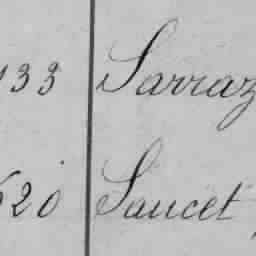 133 Sarraz
620 Saucet